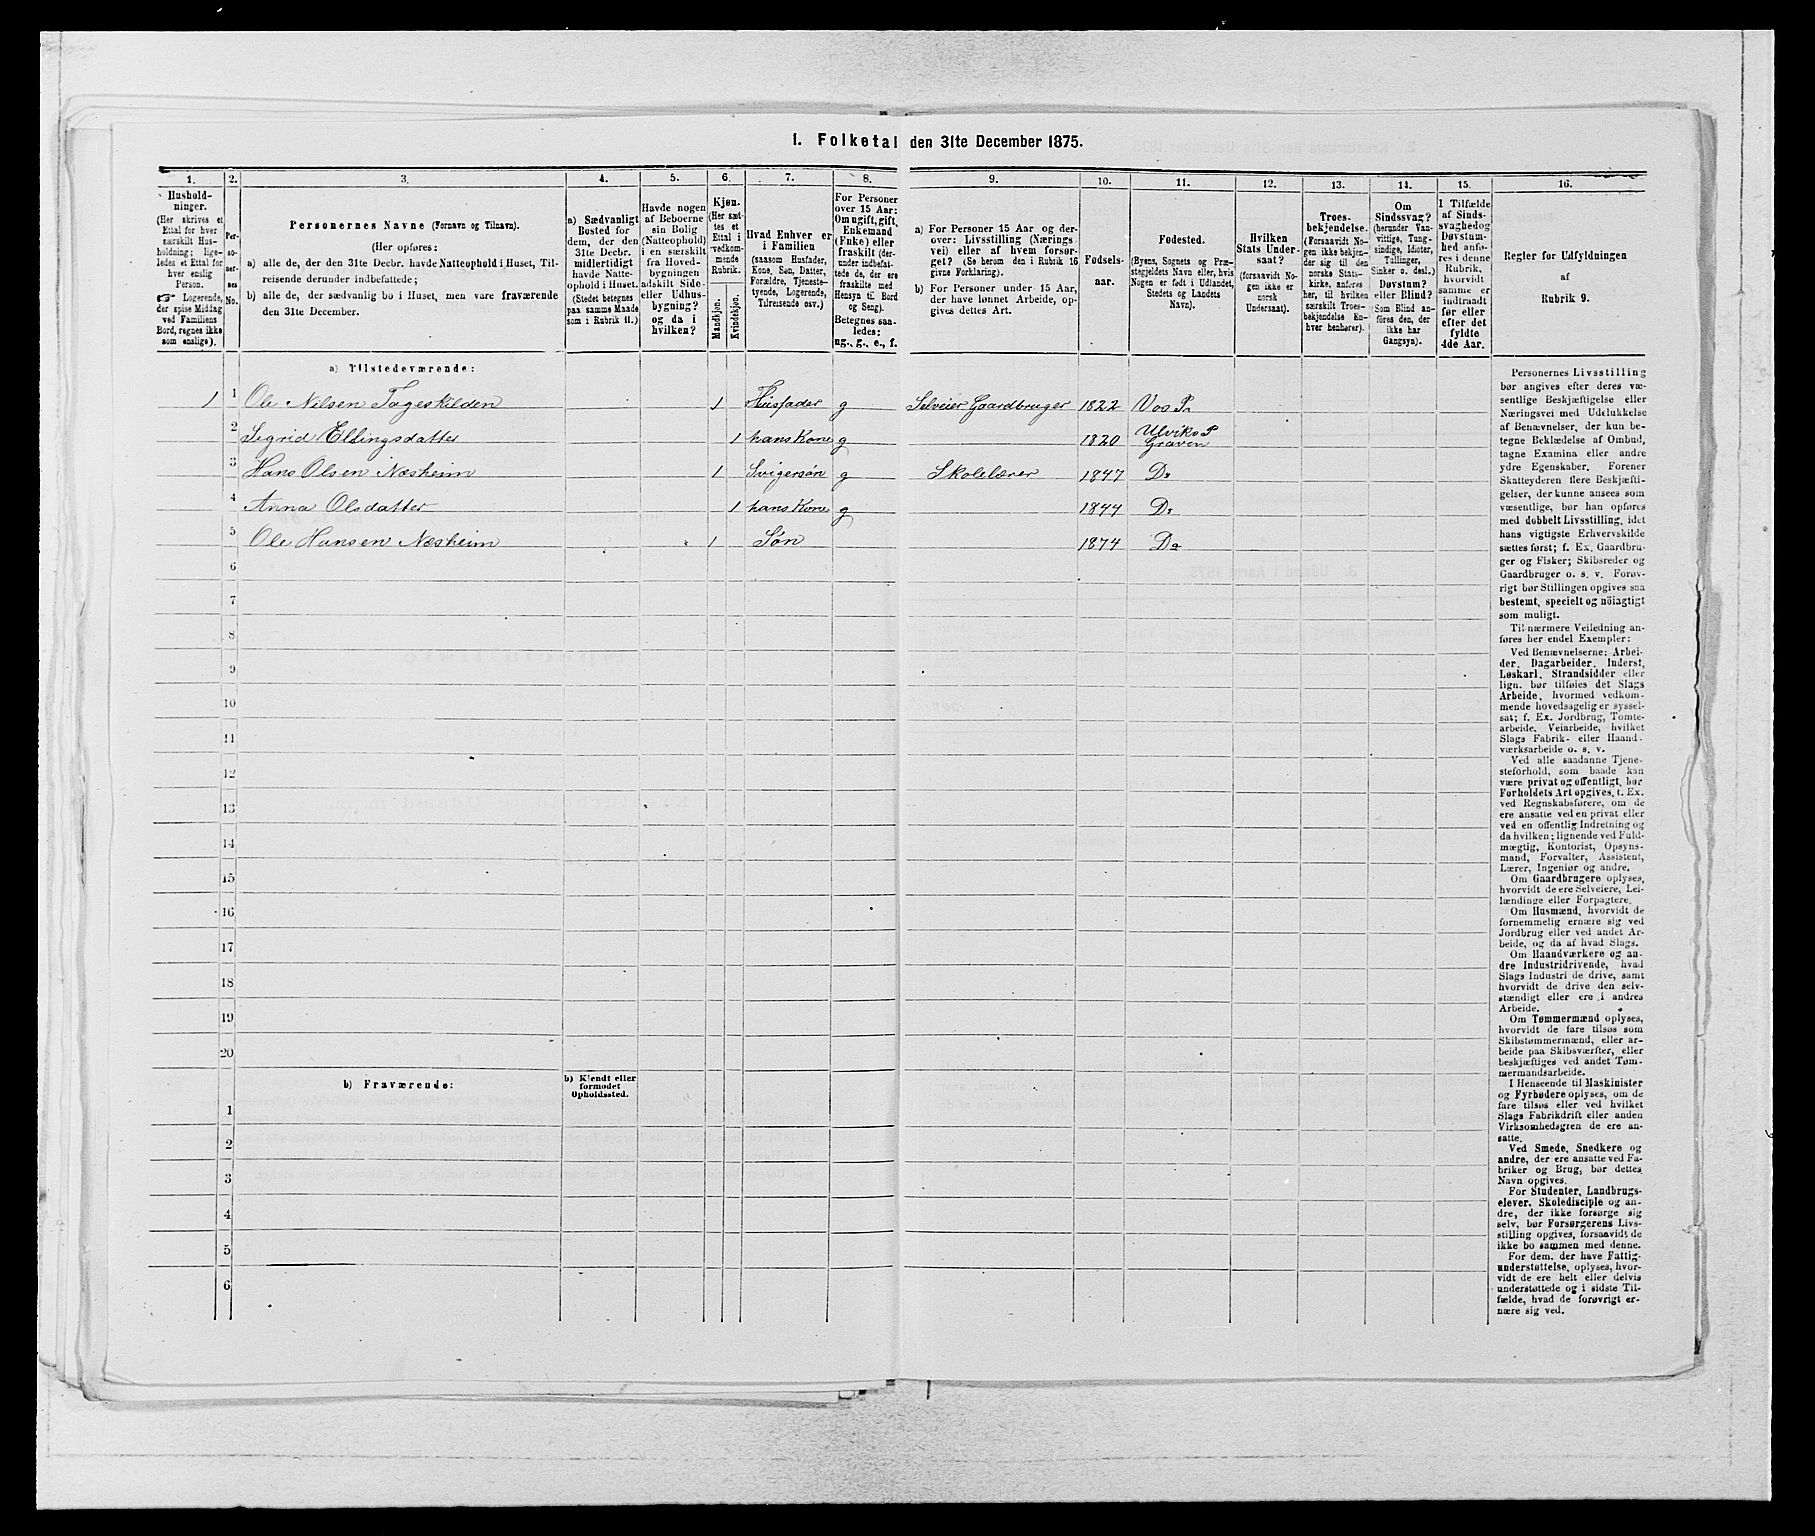 1. Folketal den 31te December 1875.
1. 2. 3. 4. 5. 6. 7. 8. 9. 10. 11. 12. 13. 14. 15. 16.
Hushold-
ninger.
(Her skrives et
Ettal for hver
særskilt Hus-
holdning; lige-
ledes et Ettal for
hver enslig
Person.
☞ Logerende,
der spise Middag
ved Familiens
Bord, regnes ikke
som enslige).
Per-
so-
ner-
nes
No.
Personernes Navne (Fornavn og Tilnavn).
(Her opføres:
a) alle de, der den 31te Decbr. havde Natteophold i Huset, Til-
reisende derunder indbefattede;
b) alle de, der sædvanlig bo i Huset, men vare fraværende
den 31te December.
a) Sædvanligt
Bosted for
dem, der den
31te Decbr.
midlertidigt
havde Natte-
ophold i Huset.
(Stedet betegnes
paa samme Maade
som i Rubrik 11.)
Havde nogen
af Beboerne
sin Bolig
(Natteophold)
i en særskilt
fra Hoved-
bygningen
adskilt Side-
eller Udhus-
bygning?
og da i
hvilken?
Kjøn.
(Her sæt-
tes et
Ettal i
vedkom-
mende
Rubrik.
Mandkjøn.
Kvindekjøn.
Hvad Enhver er
i Familien
(saasom Husfader,
Kone, Søn, Datter,
Forældre, Tjeneste-
tyende, Logerende,
Tilreisende osv.)
For Personer
over 15 Aar:
Om ugift, gift,
Enkemand
(Enke) eller
fraskilt (der-
under indbefat-
tede de, der ere
fraskilte med
Hensyn til Bord
og Seng).
Betegnes saa-
ledes:
ug., g., e., f.
a) For Personer 15 Aar og der-
over: Livsstilling (Nærings
vei) eller af hvem forsør-
get? (Se herom den i Rubrik 16
givne Forklaring).
b) For Personer under 15 Aar,
der have lønnet Arbeide, op-
gives dettes Art.
Fødsels-
aar.
Fødested.
(Byens, Sognets og Præ-
stegjeldets Navn eller, hvis
Nogen er født i Udlandet,
Stedets og Landets
Navn).
Hvilken
Stats Under-
saat?
(forsaavidt No-
gen ikke er
norsk
Undersaat).
Troes-
bekjendelse.
(Forsaavidt No-
gen ikke bekjen-
der sig til den
norske Stats-
kirke, anføres
her, til hvilken
særskilt Troes-
bekjendelse En-
hver henhører).
Om
Sindssvag?
(herunder Van-
vittige, Tung-
sindige, Idioter,
Tullinger,
Sinker o. desl.)
Døvstum?
eller Blind?
Som Blind an-
føres den, der
ikke har
Gangsyn).
I Tilfælde
af Sinds-
svaghed og
Døvstum-
hed anfø-
res i denne
Rubrik,
hvorvidt
samme er
indtraadt
før eller
efter det
fyldte
4de Aar.
Regler for Udfyldningen
af
Rubrik 9.
a) Tilstedeværende:
1 1 Ole Nilsen Tageskilden 1 Husfader g Selveier Gaardbruger 1822 Vos Pr
2 Sigrid Ellingsdatter 1 hans Kone g 1820 Ulviks P Graven
3 Hans Olsen Næsheim 1 Svigersøn g Skolelærer 1847 Do
4 Anna Olsdatter 1 hans Kone g 1844 Do
5 Ole Hansen Næsheim 1 Søn 1874 Do
6
7
8
9
10
11
12
13
14
15
16
17
18
19
20
b) Fraværende:
b) Kjendt eller
formodet
Opholdssted.
1
2
3
4
5
6
Personernes Livsstilling
bør angives efter deres væ-
sentlige Beskjæftigelse eller
Næringsvei med Udelukkelse
af Benævnelser, der kun be-
tegne Beklædelse af Ombud,
tagne Examina eller andre
ydre Egenskaber. Forener
Skatteyderen flere Beskjæfti-
gelser, der kunne ansees som
væsentlige, bør han opføres
med dobbelt Livsstilling, idet
hans vigtigste Erhvervskilde
sættes først; f. Ex. Gaardbru-
ger og Fisker; Skibsreder og
Gaardbruger o. s. v. Forøv-
rigt bør Stillingen opgives saa
bestemt, specielt og nöiagtigt
som muligt.
Til nærmere Veiledning an-
føres her endel Exempler:
Ved Benævnelserne: Arbei-
der, Dagarbeider, Inderst,
Løskarl, Strandsidder eller
lign. bør tilføies det Slags
Arbeide, hvormed vedkom-
mende hovedsagelig er syssel-
sat; f. Ex. Jordbrug, Tomte-
arbeide, Veiarbeide, hvilket
Slags Fabrik- eller Haand-
værksarbeide o. s. v.
Ved alle saadanne Tjene-
steforhold, som baade kan
være privat og offentligt, bør
Forholdets Art opgives, f. Ex.
ved Regnskabsførere, om de
ere ansatte ved en privat eller
ved en offentlig Indretning og
da hvilken; lignende ved Fuld-
mægtig, Kontorist, Opsyns-
mand, Forvalter, Assistent,
Lærer, Ingeniør og andre.
Om Gaardbrugere oplyses,
hvorvidt de ere Selveiere, Lei-
lændinge eller Forpagtere.
Om Husmænd, hvorvidt de
fornemmelig ernære sig ved
Jordbrug eller ved andet Ar-
beide, og da af hvad Slags.
Om Haandværkere og an-
dre Industridrivende, hvad
Slags Industri de drive, samt
hvorvidt de drive den selv-
stændigt eller ere i andres
Arbeide.
Om Tømmermænd oplyses,
hvorvidt de fare tilsøs som
Skibstømmermænd, eller ar-
beide paa Skibsværfter, eller
beskjæftiges ved andet Tøm-
mermandsarbeide.
I Henseende til Maskinister
og Fyrbødere oplyses, om de
fare tilsøs eller ved hvilket
Slags Fabrikdrift eller anden
Virksomhedsgren de ere an-
satte.
Ved Smede, Snedkere og
andre, der ere ansatte ved Fa-
briker og Brug, bør dettes
Navn opgives.
For Studenter, Landbrugs-
elever, Skoledisciple og an-
dre, der ikke forsørge sig
selv, bør Forsørgerens Livs-
stilling opgives, forsaavidt de
ikke bo sammen med denne.
For dem, der have Fattig-
understøttelse, oplyses, hvor-
vidt de ere helt eller delvis
understøttede og i sidste Til-
fælde, hvad de forøvrigt er-
nære sig ved.